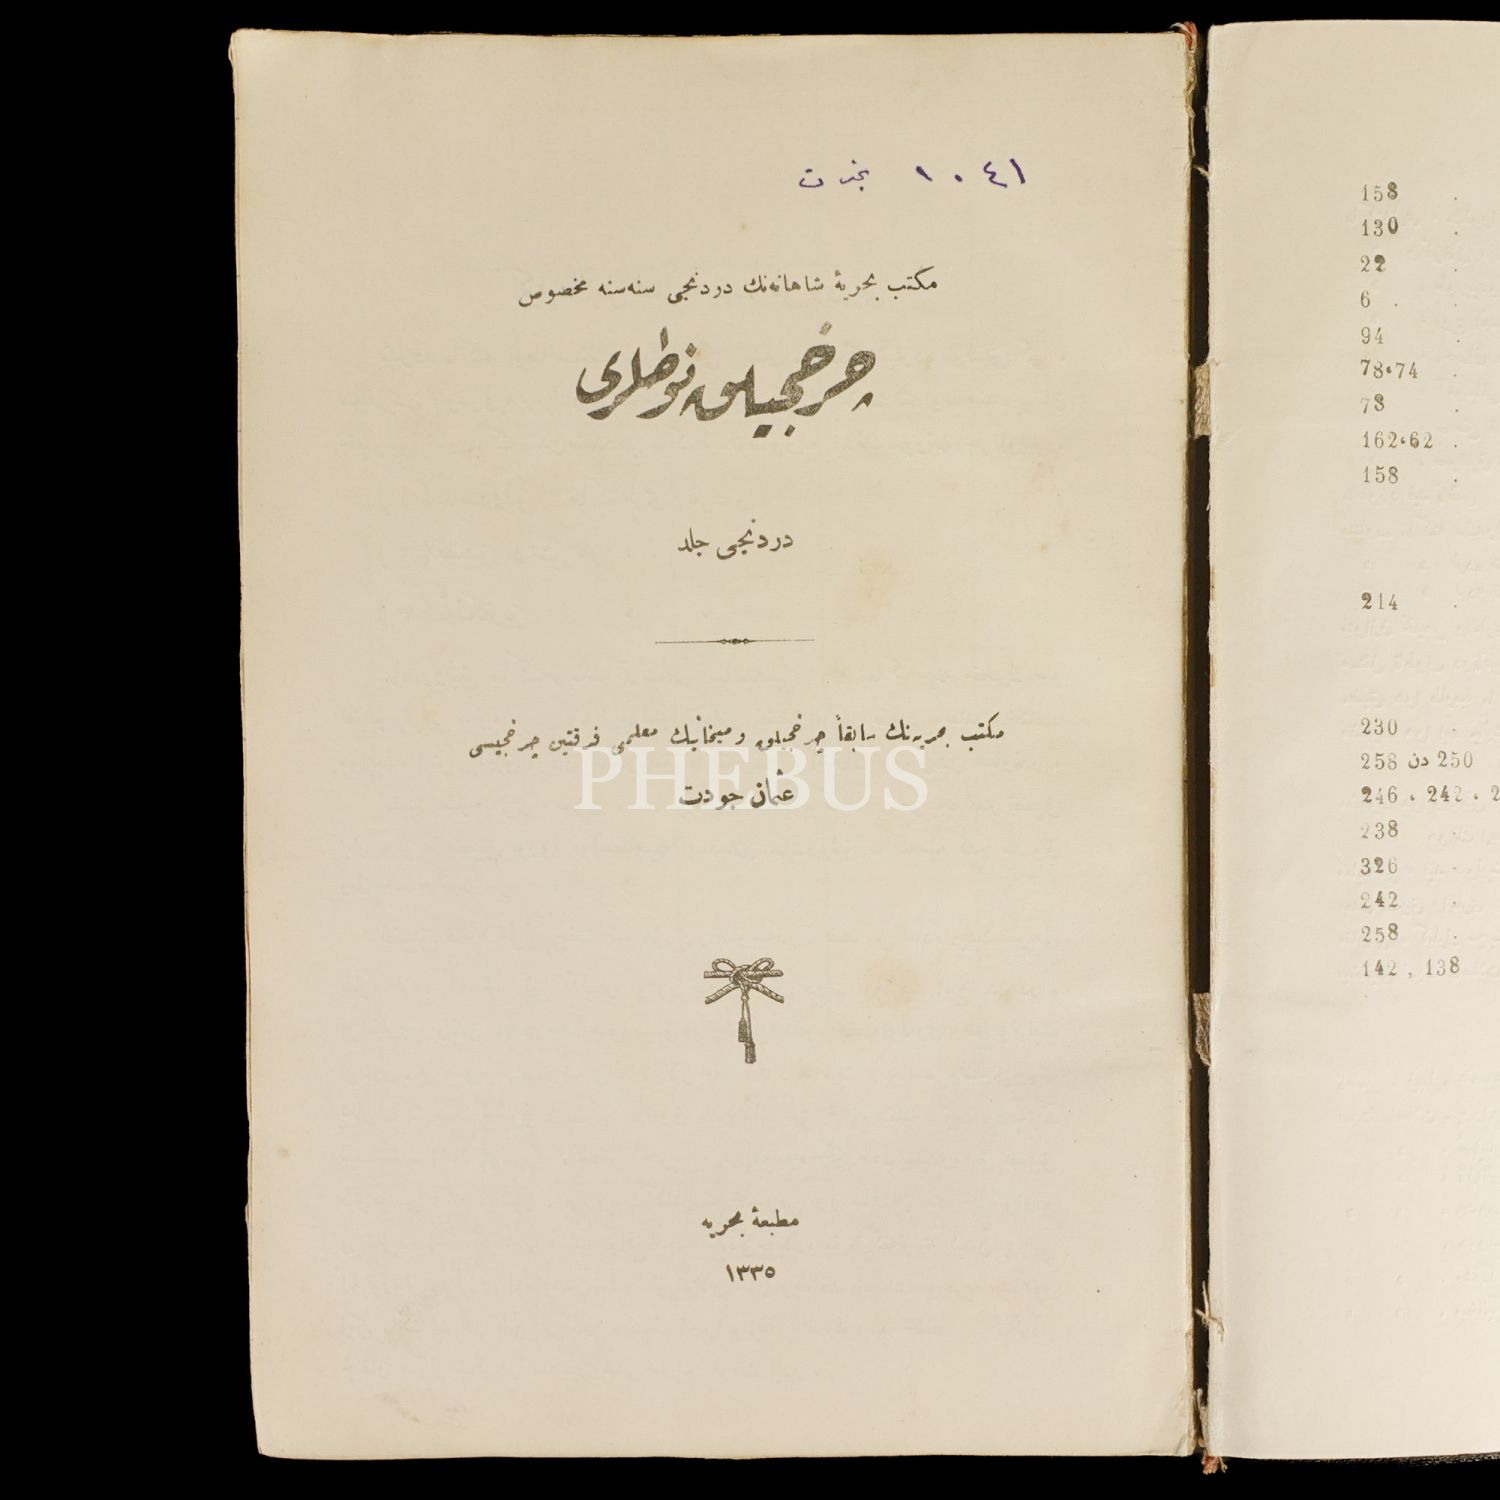 ١٠٤١
مكتب بحريۀ شاهانه‌نك دردنجى سنه‌سنه مخصوص
چرخجیلق نوطلرى
دردنجى جلد
مكتب بحريه‌نك سابقاً چرخجیلق و ميخانيك معلمى فرقتين چرخجیسى
عثمان جودت
PHEBUS
مطبعۀ بحريه
١٣٣٥
158
130
22
6
94
78،74
78
162،62
158
214
230
250 دن 258
246 ، 242 ،
238
326
242
258
142 , 138